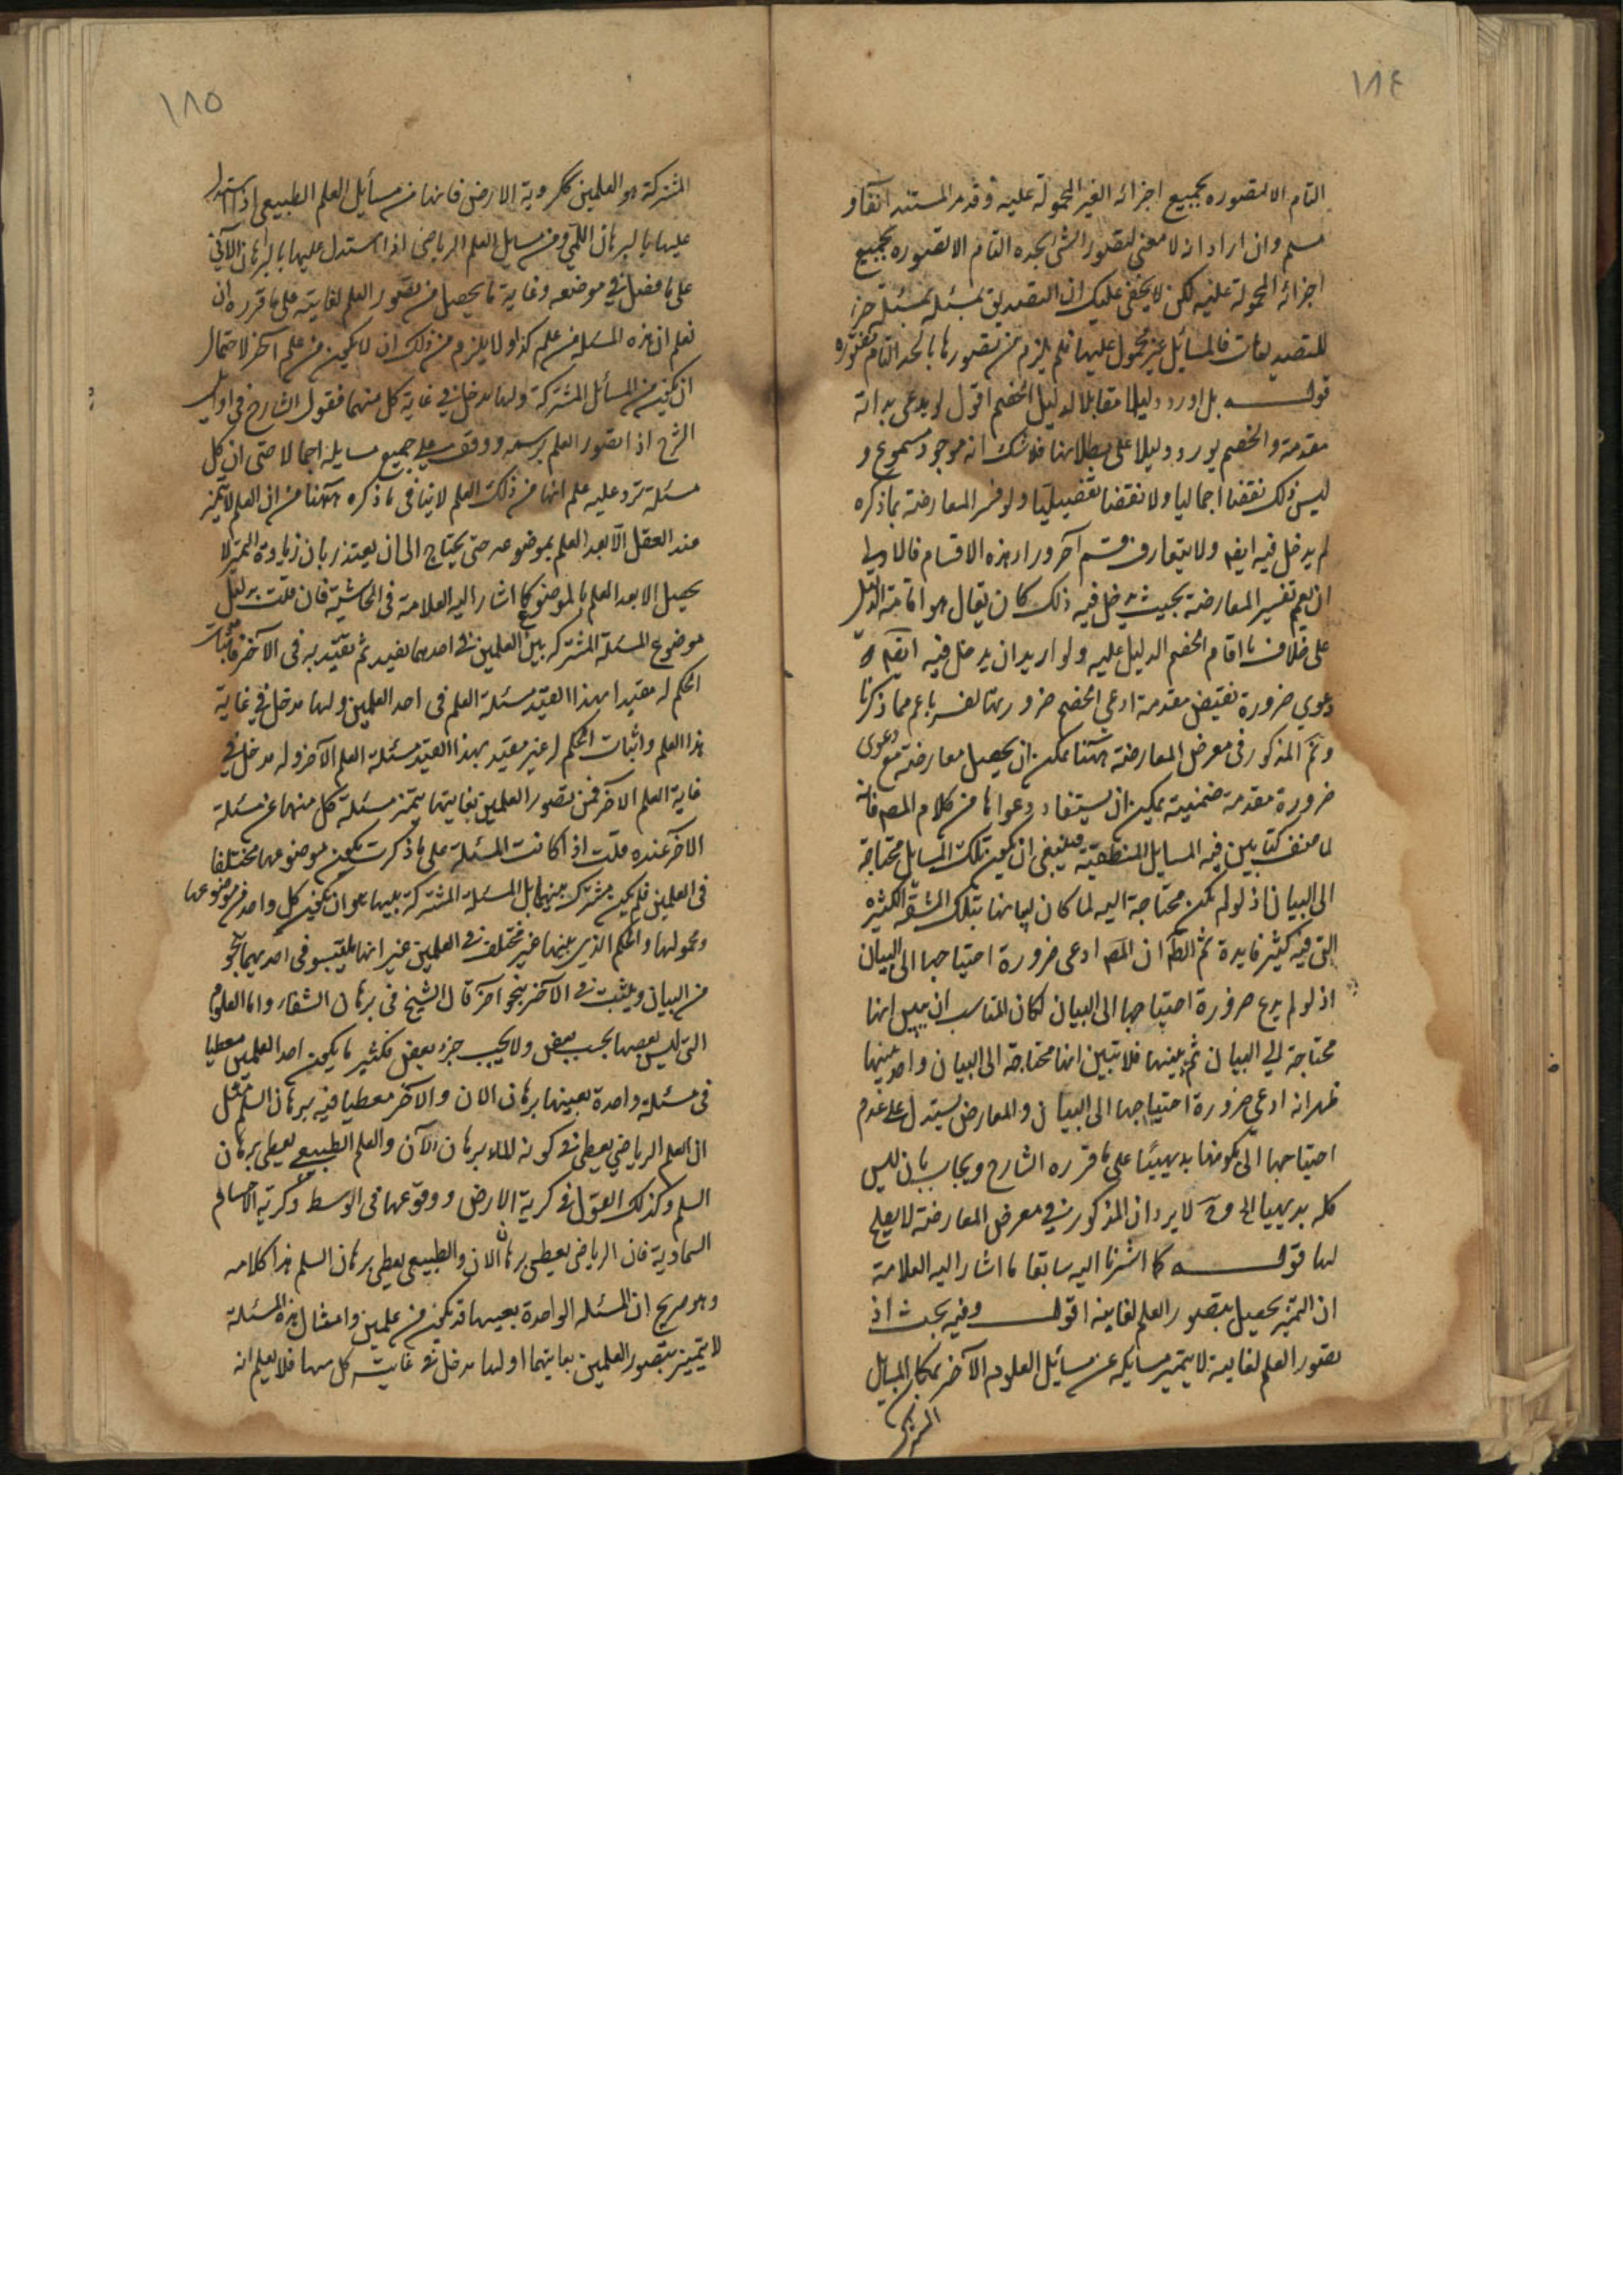 ١٨٤
التام الا تصوره بجميع اجزائه الغير المحمولة عليه وقد مر المستند آنفا و
مسلم وان اراد انه لا معنى لتصور الشئ بحده التام الا تصوره بجميع
اجزائه المحمولة عليه لكن لا يخفى عليك ان التصديق بمسئلة مسئلة جزء
للتصديقات فالمسائل غير محمول عليها فلم يلزم من تصورها بالحد التام تصوره
قوله بل اورد دليلا مقابلا لدليل الخصم اقول لو يدعى بداهة
مقدمة والخصم يورد دليلا على بطلانها فلا شك انه موجود مسموع و
ليس ذلك نقضا اجماليا ولا نقضا تفصيليا ولو فسر المعارضة بما ذكره
لم يدخل فيه ايضا ولا يتعارف قسم آخر وراء هذه الاقسام فالاولى
ان يعم تفسير المعارضة بحيث يدخل فيه ذلك كان يقال هو اقامة الدليل
على خلاف ما اقام الخصم الدليل عليه ولو اريد ان يدخل فيه ايضا
دعوى ضرورة نقيض مقدمة ادعى الخصم ضرورتها لفسر باعم مما ذكرنا
وثم المذكور فى معرض المعارضة ههنا يمكن ان يحصل معارضة مع دعوى
ضرورة مقدمة ضمنية يمكن ان يستفاد دعواها من كلام المصه فانه
لما صنف كتابا بين فيه المسايل المنطقية فينبغى ان يكون تلك المسايل محتاجة
الى البيان اذ لو لم يكن محتاجة اليه لما كان لبيانها بتلك المشقة الكثيرة
التى فيه كثير فايدة ثم الظ ان المصه ادعى ضرورة احتياجها الى البيان
اذ لو لم يدع ضرورة احتياجها الى البيان لكان المناسب ان يبين انها
محتاجة الى البيان ثم يبينها فلا تبين انها محتاجة الى البيان و
ظهر انه ادعى ضرورة احتياجها الى البيان والمعارض يستدل على عدم
احتياجها الى بكونها بديهيا على ما قرره الشارح ويجاب بان ليس
كله بديهيا الى لا يرد ان المذكور فى معرض المعارضة لا يصلح
لها قوله كما اشرنا اليه سابقا ما اشار اليه العلامة
ان التميز يحصل بتصور العلم لغايته اقول وفيه بحث اذ
تصور العلم لغايته لا يتميز مسايله عن مسائل العلوم الآخر بمكان المسايل
المشتركة
١٨٥
المشتركة بين العلمين ككروية الارض فانها من مسائل العلم الطبيعى اذا استدل
عليها بالبرهان اللمى ومن مسايل العلم الرياضى اذا استدل عليها بالبرهان الانى
على ما فصل فى موضعه وغاية ما يحصل من تصور العلم لغايته على ما قرره ان
نعلم ان هذه المسئلة من علم كذا ولا يلزم من ذلك ان لا يكون من علم آخر لاحتمال
ان يكون من المسائل المشتركة ولها مدخل فى غاية كل منهما فقول الشارح فى اوايل
الشرح اذا تصور العلم برسمه ووقف على جميع مسايله اجمالا حتى ان كل
مسئلة ترد عليه علم انها من ذلك العلم لا ينافى ما ذكره ههنا من ان العلم لا يتميز
عند العقل الا بعد العلم بموضوعه حتى يحتاج الى ان يعتذر بان زيادة التميز لا
يحصل الا بعد العلم بالموضوع كما اشار اليه العلامة فى الحاشية فان قلت
موضوع المسئلة المشتركة بين العلمين فى احدهما يقيد ثم يقيد به فى الآخر فاثبات
الحكم له مقيدا بهذا القيد مسئلة العلم فى احد العلمين ولها مدخل فى غاية
هذا العلم واثبات الحكم له غير مقيد بهذا القيد مسئلة العلم الآخر وله مدخل فى
غاية العلم الآخر فمن تصور العلمين بغايتهما يتميز مسئلة كل منهما عن مسئلة
الآخر عنده قلت اذا كانت المسئلة على ما ذكرت يكون موضوعها مختلفا
فى العلمين فلم يكن مشتركة بينهما بل المسئلة المشتركة بينهما هو ان يكون كل واحد من موضوعها
ومحمولها والحكم الذى بينهما غير مختلف فى العلمين غير انها يقتبس فى احديهما بنحو
من البيان ويثبت فى الآخر بنحو آخر قال الشيخ فى برهان الشفاء واما العلوم
التى ليس بعضها تحت بعض ولا تحت جزء بعض فكثيرا ما يكون احد العلمين معطيا
فى مسئلة واحدة بعينها برهان الان والآخر معطيا فيه برهان اللم مثل
ان العلم الرياضى يعطى فى كونه للماء برهان الان والعلم الطبيعى يعطى برهان
اللم وكذلك القول فى كرية الارض ووقوعها فى الوسط وكرية الاجسام
السماوية فان الرياضى يعطى برهان الان والطبيعى يعطى برهان اللم هذا كلامه
وهو صريح ان المسئلة الواحدة بعينها قد يكون من علمين وامثال هذه المسئلة
لا يتميز بتصور العلمين بغايتهما اولها مدخل فى غايت كل منهما فلا يعلم انه